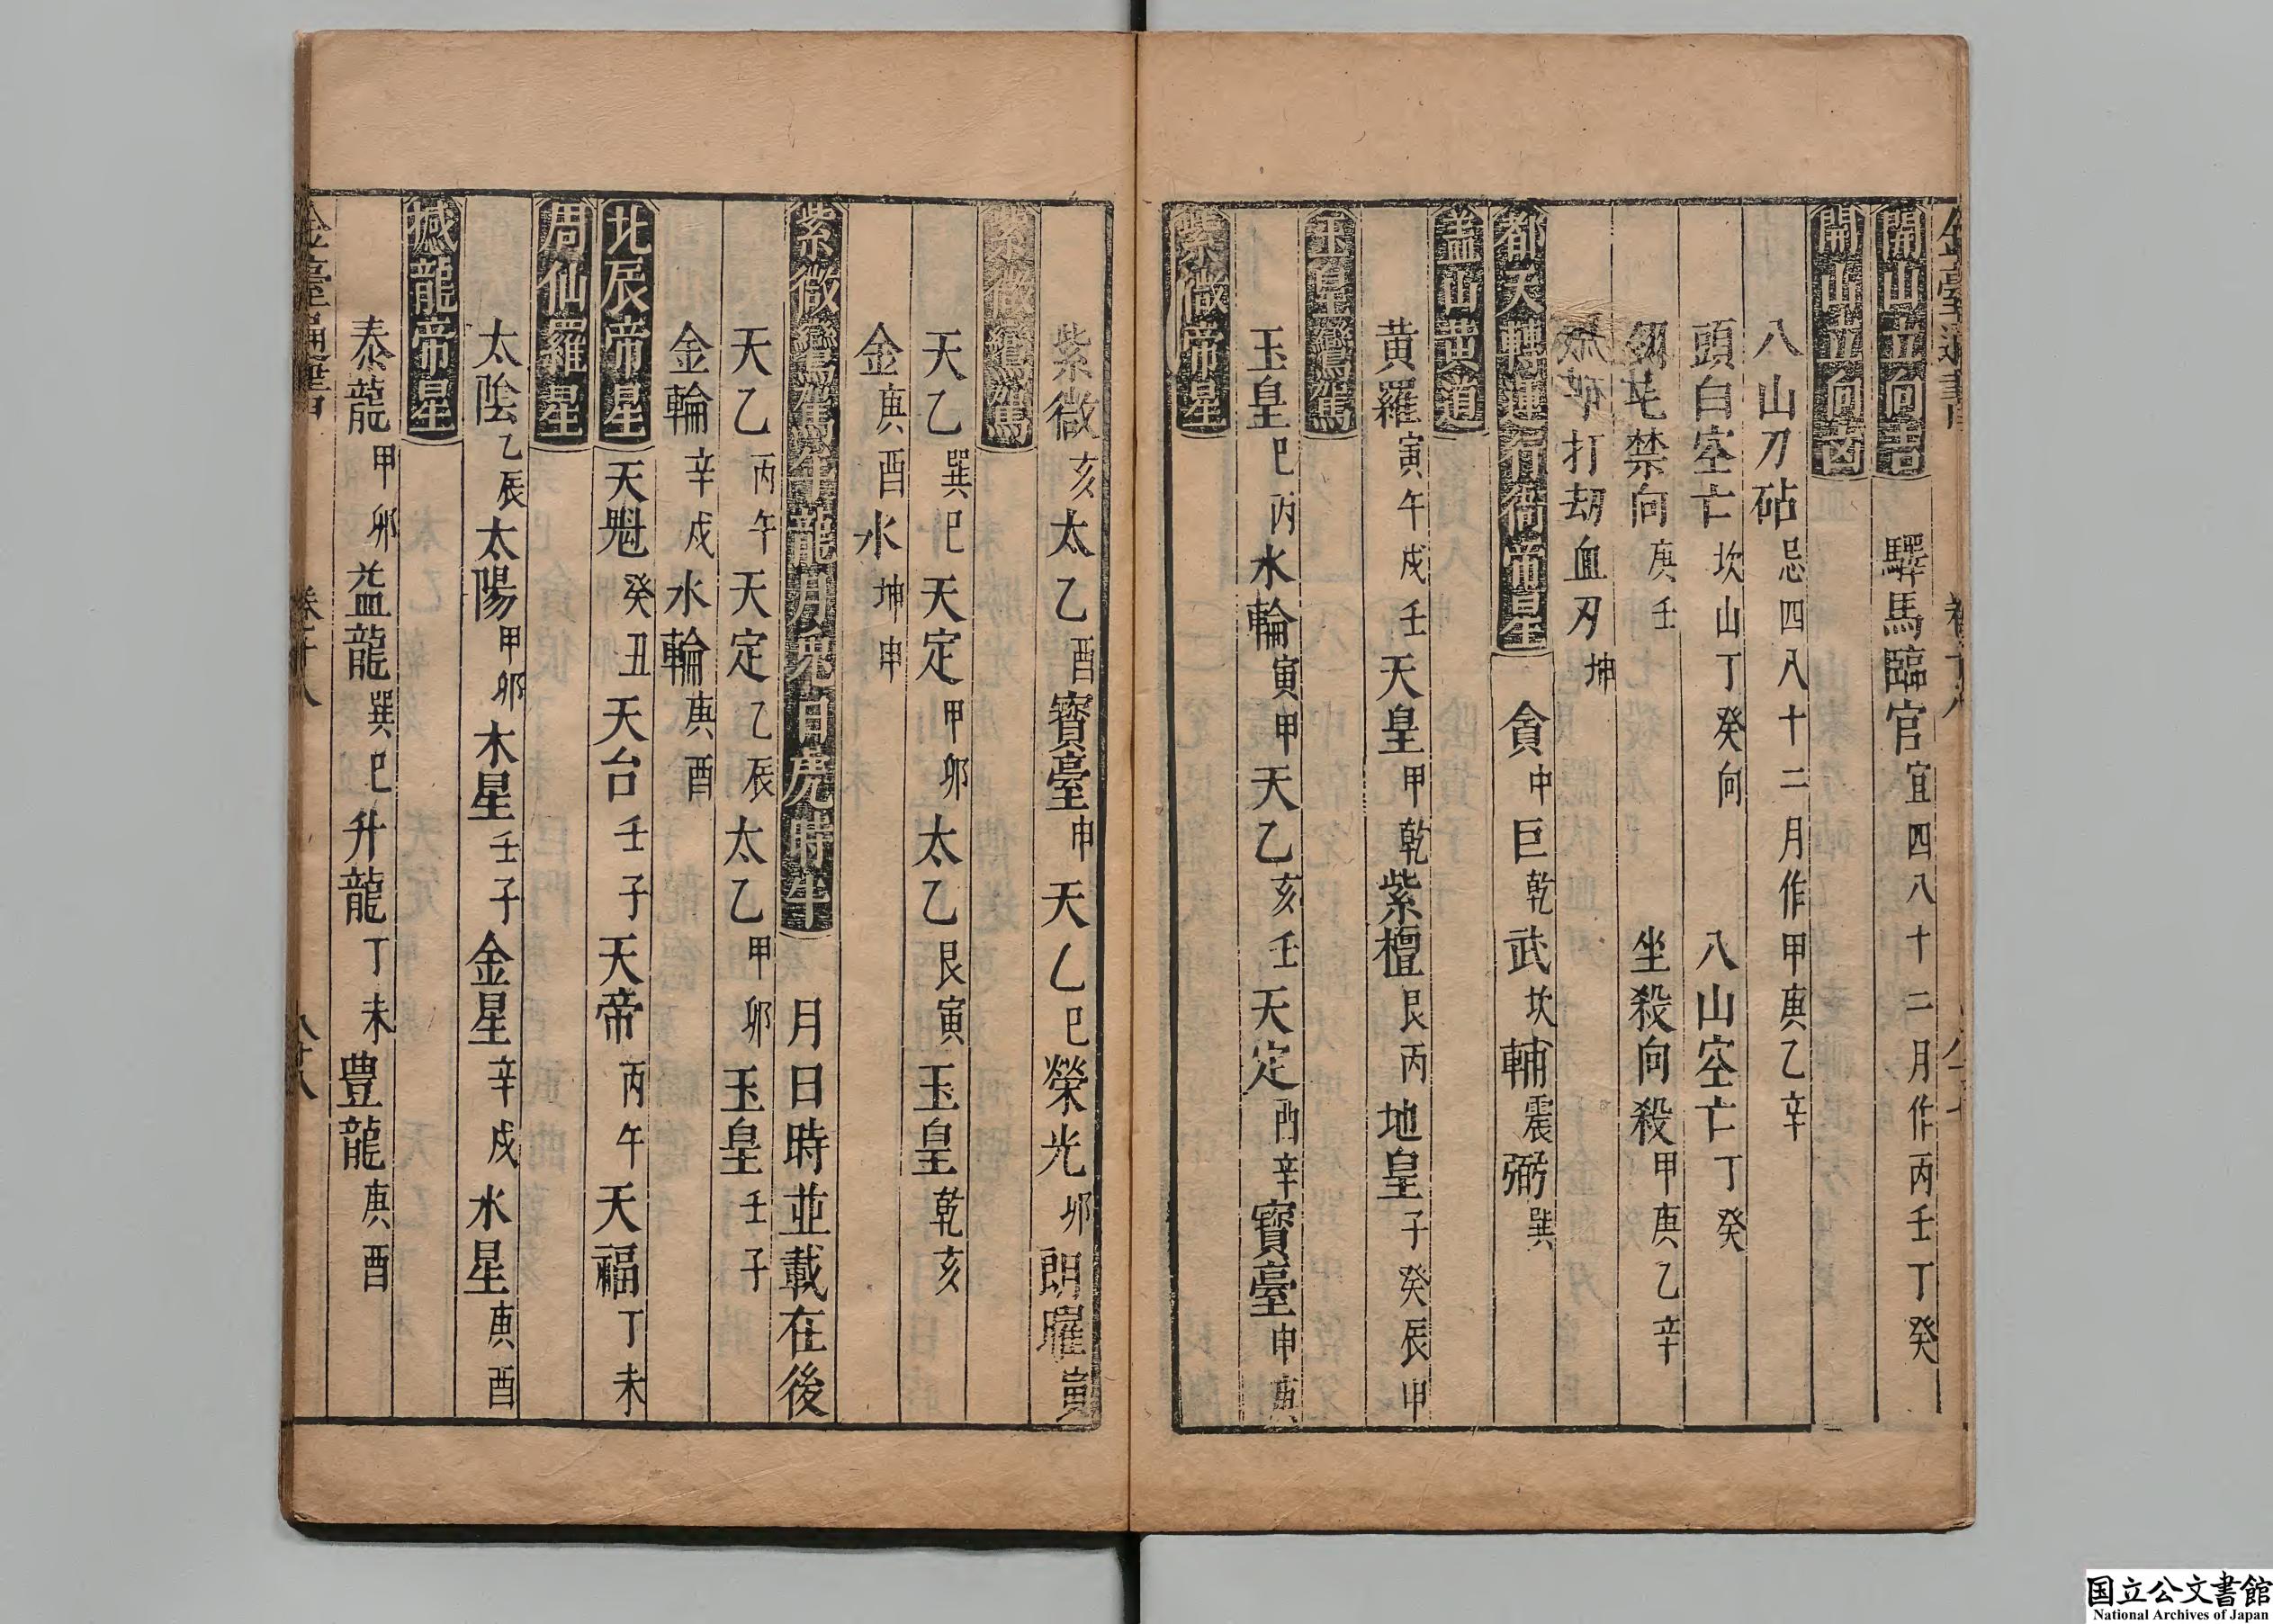 開山立向吉　驛馬臨官宜四八十二月作丙壬丁癸
開山立向凶
八山刀砧忌四八十二月作甲庚乙辛
頭白空亡坎山丁癸向　八山空亡丁癸
禁向庚壬　坐殺向殺甲庚乙辛
打刼血刃坤
都天轉運行衙帝星　貪中巨乾武坎輔震弼巽
盖山黄道
黃羅寅午戌壬天皇甲乾紫檀艮丙地皇子癸辰申
玉皇鑾駕
玉皇巳丙水輪寅甲天乙亥壬天定酉辛寳臺申庚
紫微帝星
紫微亥太乙酉寳臺申天乙巳榮光卯朗曜寅
紫微鑾駕
天乙巽巳天定甲卯太乙艮寅玉皇乾亥
金庚酉水坤申
紫微鑾駕年龍月兔日虎時牛　月日時並載在後
天乙丙午天定乙辰太乙甲卯玉皇壬子
金輪辛戌水輪庚酉
北辰帝星　天魁癸丑天台壬子天帝丙午天福丁未
周仙羅星
太陰乙辰太陽甲卯木星壬子金星辛戌水星庚酉
撼龍帝星
泰龍甲卯益龍巽巳升龍丁未豊龍庚酉
国立公文書館
National Archives of Japan